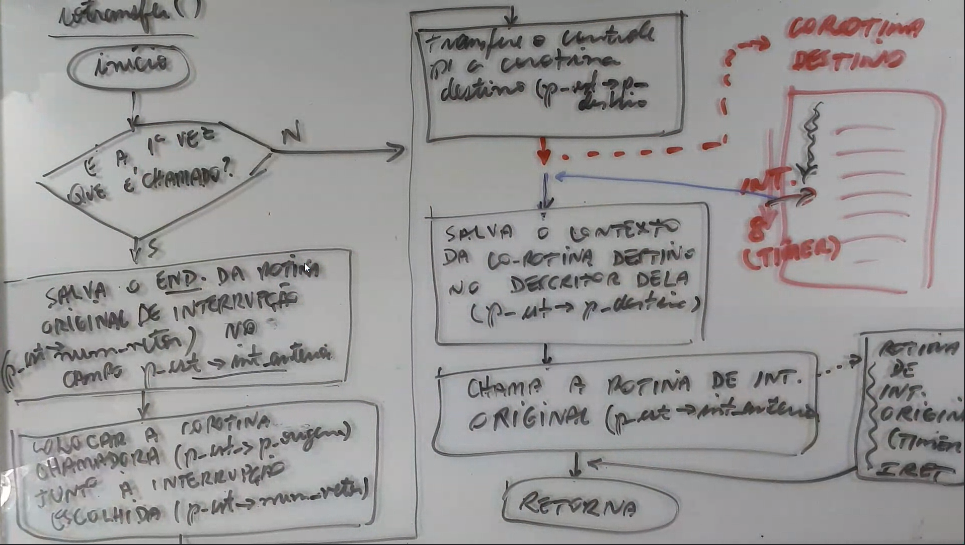 iotransfer()
início
É A 1ª VEZ
QUE É CHAMADO?
N
S
SALVA O END. DA ROTINA
ORIGINAL DE INTERRUPÇÃO
(p_est→num_vetor) NO
CAMPO p_est→int_anterior
COLOCAR A COROTINA
CHAMADORA (p_est→p_origem)
JUNTO A INTERRUPÇÃO
ESCOLHIDA (p_est→num_vetor)
Transfere o controle
p/ a corotina
destino (p_est→p_
destino
COROTINA
DESTINO
INT.
8
(TIMER)
SALVA O CONTEXTO
DA CO-ROTINA DESTINO
NO DESCRITOR DELA
(p_est→p_destino)
CHAMA A ROTINA DE INT.
ORIGINAL (p_est→int_anterior
ROTINA
DE
INT.
ORIGIN
(TIMER
IRET
RETORNA